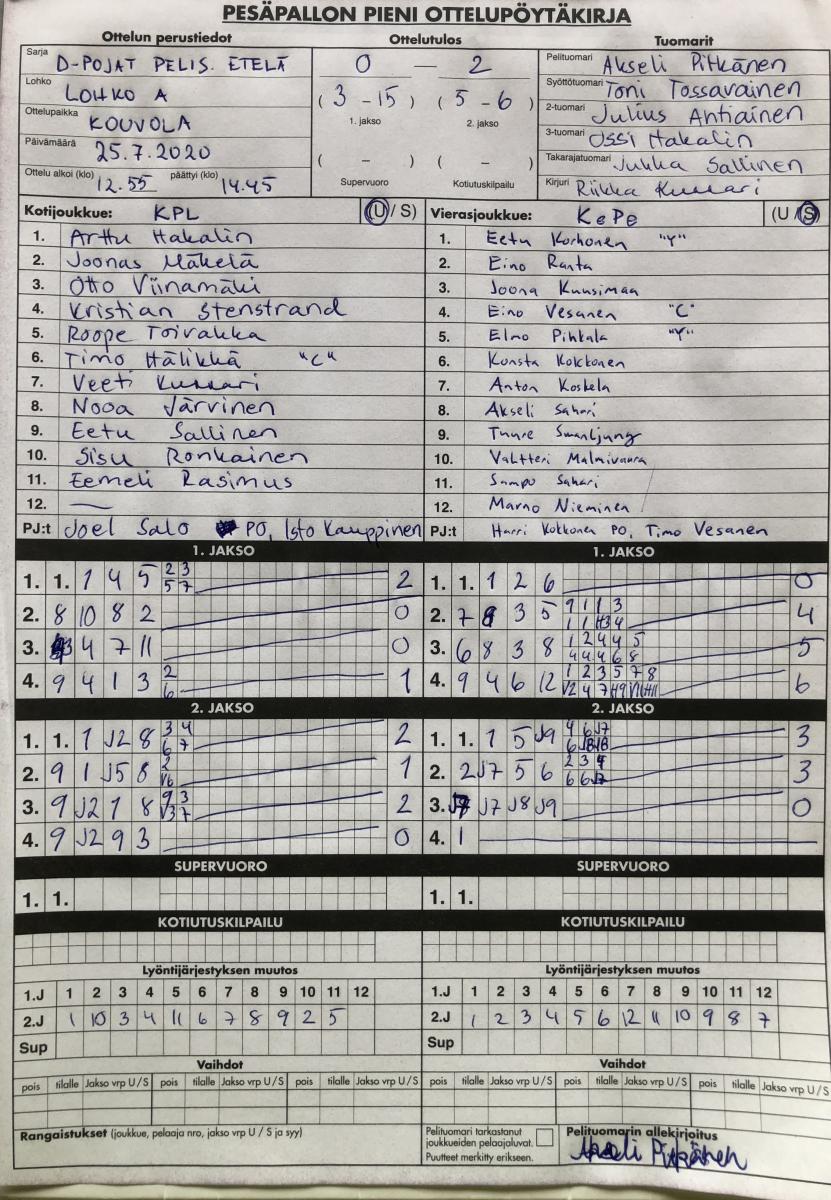 PESÄPALLON PIENI OTTELUPÖYTÄKIRJA
Ottelun perustiedot
Sarja D-POJAT PELIS. ETELÄ
Lohko LOHKO A
Ottelupaikka KOUVOLA
Päivämäärä 25.7.2020
Ottelu alkoi (klo) 12.55 päättyi (klo) 14.45
Ottelutulos
0 — 2
(3 - 15) (5 - 6)
1. jakso 2. jakso
( - ) ( - )
Supervuoro Kotiutuskilpailu
Tuomarit
Pelituomari Akseli Pitkänen
Syöttötuomari Toni Tossavainen
2-tuomari Julius Antiainen
3-tuomari Ossi Hakalin
Takarajatuomari Jukka Sallinen
Kirjuri Riikka Kussari
Kotijoukkue: KPL (U / S)
1. Arttu Hakalin
2. Joonas Mäkelä
3. Otto Viinamäki
4. Kristian Stenstrand
5. Roope Toivakka
6. Timo Hälikkä "C"
7. Veeti Kussari
8. Nooa Järvinen
9. Eetu Sallinen
10. Sisu Ronkainen
11. Eemeli Rasimus
12. —
PJ:t Joel Salo PO, Isto Kauppinen
Vierasjoukkue: KePe (U / S)
1. Eetu Korhonen "Y"
2. Eino Ranta
3. Joona Kuusimaa
4. Eino Vesanen "C"
5. Elmo Pihkala "Y"
6. Konsta Kokkonen
7. Anton Koskela
8. Akseli Sahari
9. Tuure Swanljung
10. Valtteri Malmivaara
11. Sampo Sahari
12. Marno Nieminen
PJ:t Harri Kokkonen PO, Timo Vesanen
1. JAKSO
1. 1. 1 4 5 2 3 2
5 7
2. 8 10 8 2 0
3. 4 7 11 0
4. 9 4 1 3 2 1
6
2. JAKSO
1. 1. 1 J2 8 3 4 2
6 7
2. 9 1 J5 8 2 1
V6
3. 9 J2 1 8 9 3 2
V3 7
4. 9 J2 9 3 0
SUPERVUORO
1. 1.
KOTIUTUSKILPAILU
Lyöntijärjestyksen muutos
1.J 1 2 3 4 5 6 7 8 9 10 11 12
2.J 1 10 3 4 11 6 7 8 9 2 5
Sup
Vaihdot
pois tilalle Jakso vrp U / S pois tilalle Jakso vrp U / S pois tilalle Jakso vrp U / S
Rangaistukset (joukkue, pelaaja nro, jakso vrp U / S ja syy)
1. JAKSO
1. 1. 1 2 6 0
2. 7 8 3 5 9 1 1 3 4
1 1 H3 4
3. 6 8 3 8 1 2 4 4 5 5
4 4 4 6 8
4. 9 4 6 12 1 2 3 5 7 8 6
V2 4 7 H9 V11 H11
2. JAKSO
1. 1. 1 5 J9 4 6 J7 3
6
2. 2 J7 5 6 2 3 4 3
6 6 J7
3. J7 J8 J9 0
4. 1
SUPERVUORO
1. 1.
KOTIUTUSKILPAILU
Lyöntijärjestyksen muutos
1.J 1 2 3 4 5 6 7 8 9 10 11 12
2.J 1 2 3 4 5 6 12 11 10 9 8 7
Sup
Vaihdot
pois tilalle Jakso vrp U / S pois tilalle Jakso vrp U / S pois tilalle Jakso vrp U / S
Pelituomari tarkastanut
joukkueiden pelaajaluvat.
Puutteet merkitty erikseen.
Pelituomarin allekirjoitus
Akseli Pitkänen